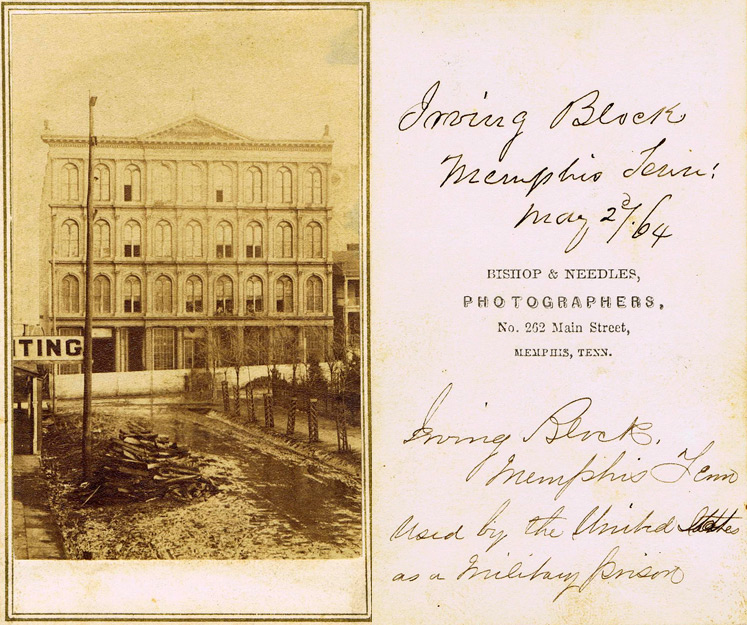 TING
Irving Block
Memphis Tenn:
May 2d/64
BISHOP & NEEDLES,
PHOTOGRAPHERS,
No. 262 Main Street,
MEMPHIS, TENN.
Irving Block.
Memphis Tenn
Used by the United States
as a Military prison